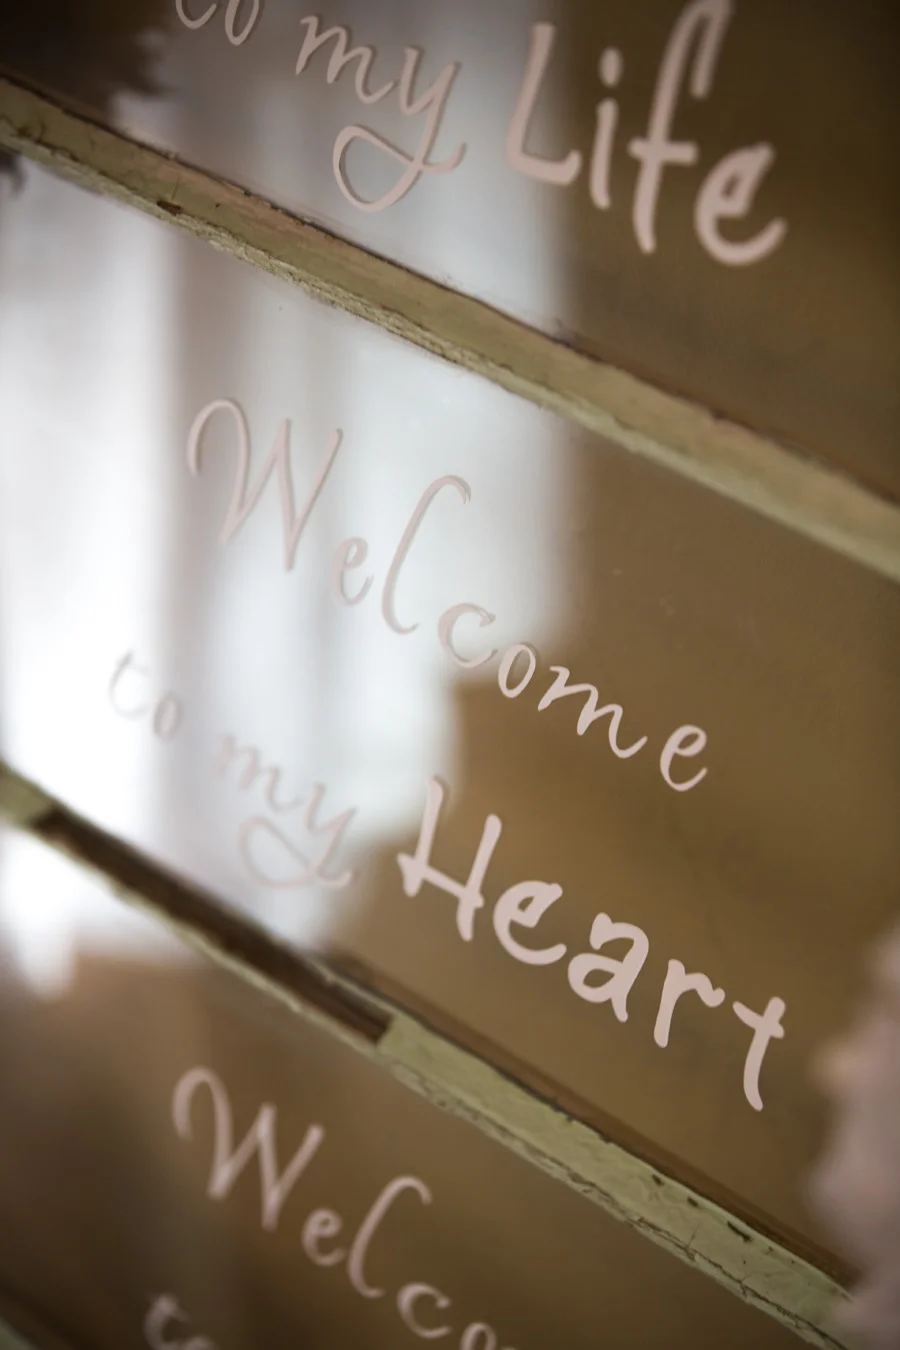 to my Life
Welcome
to my Heart
Welco
to